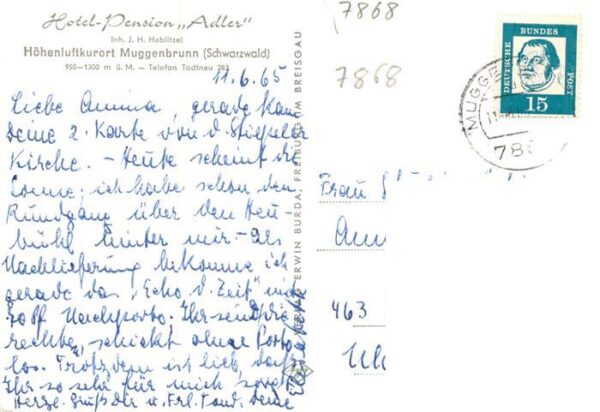 Hotel-Pension „Adler"
Inh. J. H. Hablitzel
Höhenluftkurort Muggenbrunn (Schwarzwald)
950-1300 m ü. M. – Telefon Todtnau 283
11.6.65
Liebe Amina, gerade kam
Deine 2. Karte von d. Stiepeler
Kirche. – Heute scheint die
Sonne; ich habe schon den
Rundgang über den Heu-
bühl hinter mir – Als
Nachlieferung bekomme ich
gerade das „Echo d. Zeit" mit
Nachporto. Ihr seid die
rechten, schickt ohne Porto
los. Trotzdem ist lieb, daß
Ihr so sehr für mich sorgt.
Herzl. Gruß Dir u. Frl. Deine
ERWIN BURDA, FREIBURG IM BREISGAU
7868
7868
DEUTSCHE BUNDES POST
15
MUGGE
786
Frau
463